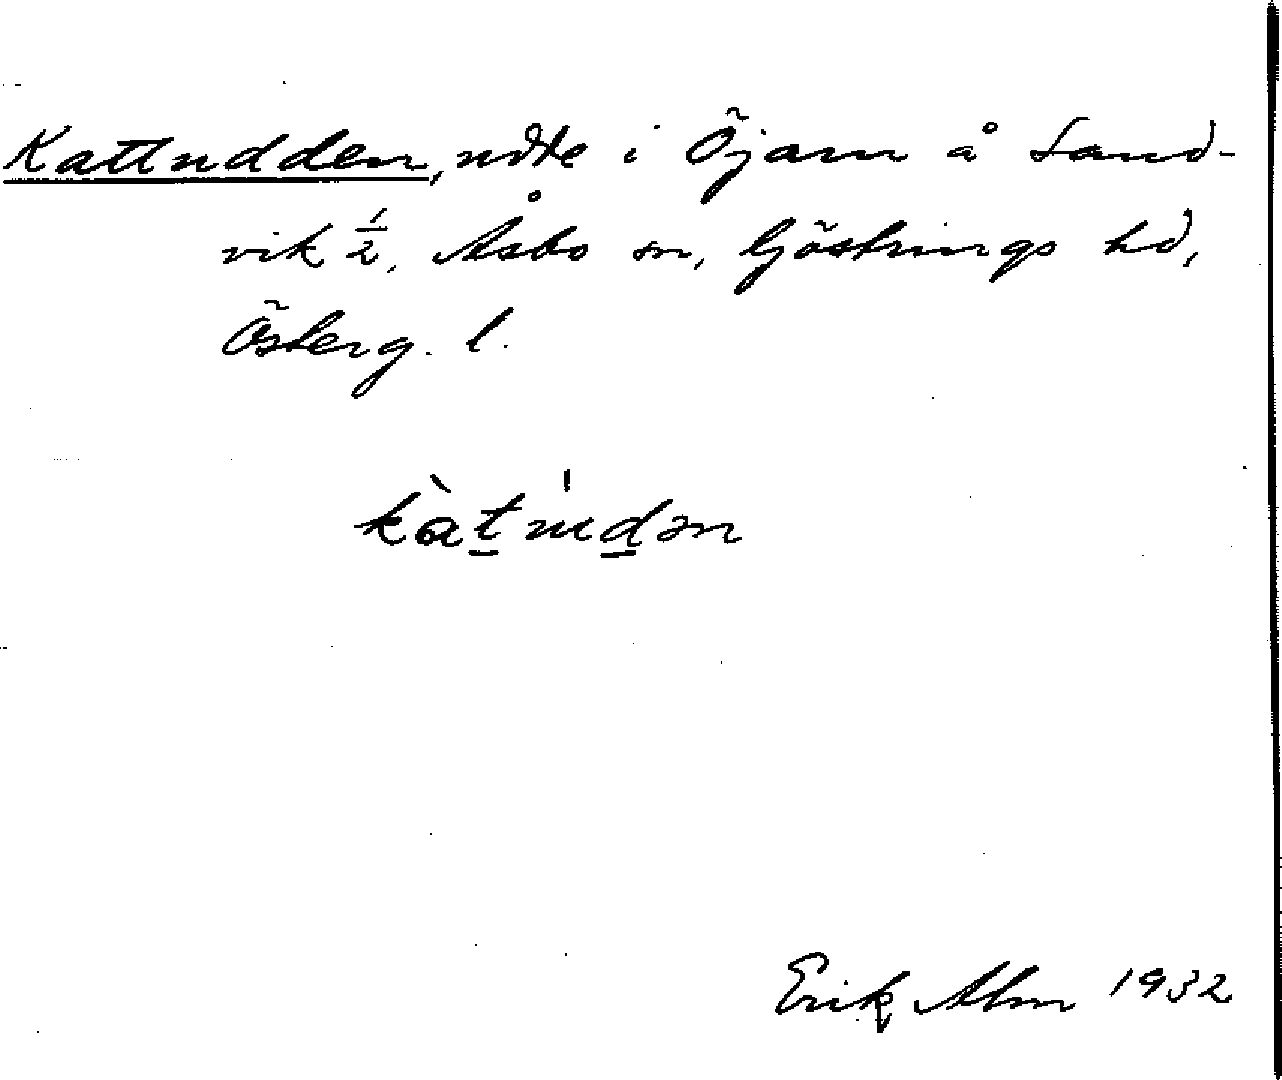 Kattudden, udde i Öjarn å Sand-
vik 1/2, Åsbo sn, Göstrings hd,
Österg. l.
kàt̲ u̍d̲ən
Erik Alm 1932